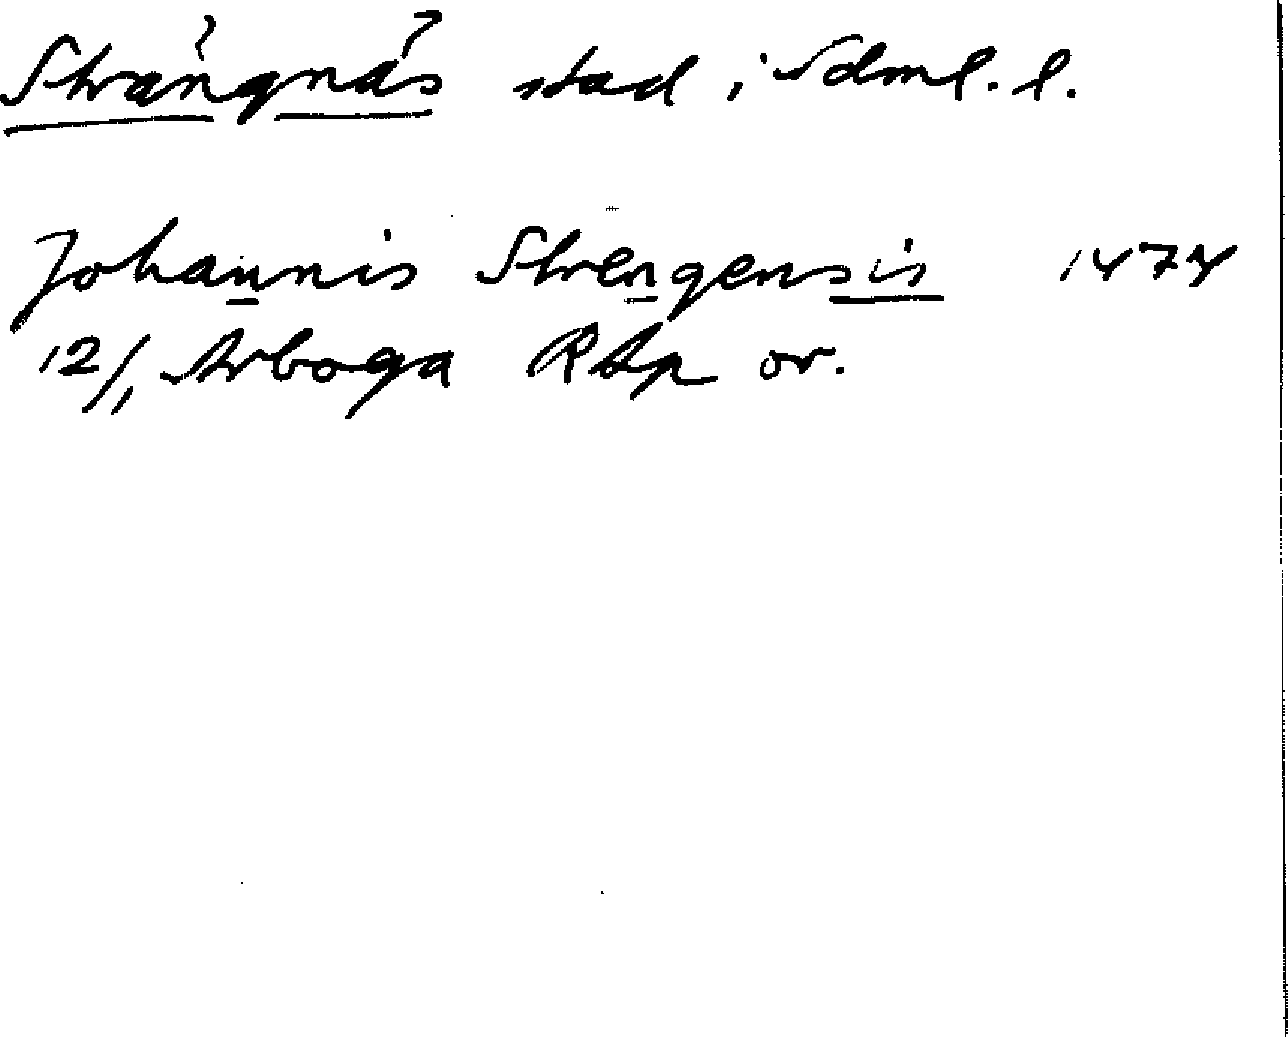 Strängnäs stad i Sdml. l.
Johannis Strengensis 1474
12/1 Arboga RAp or.